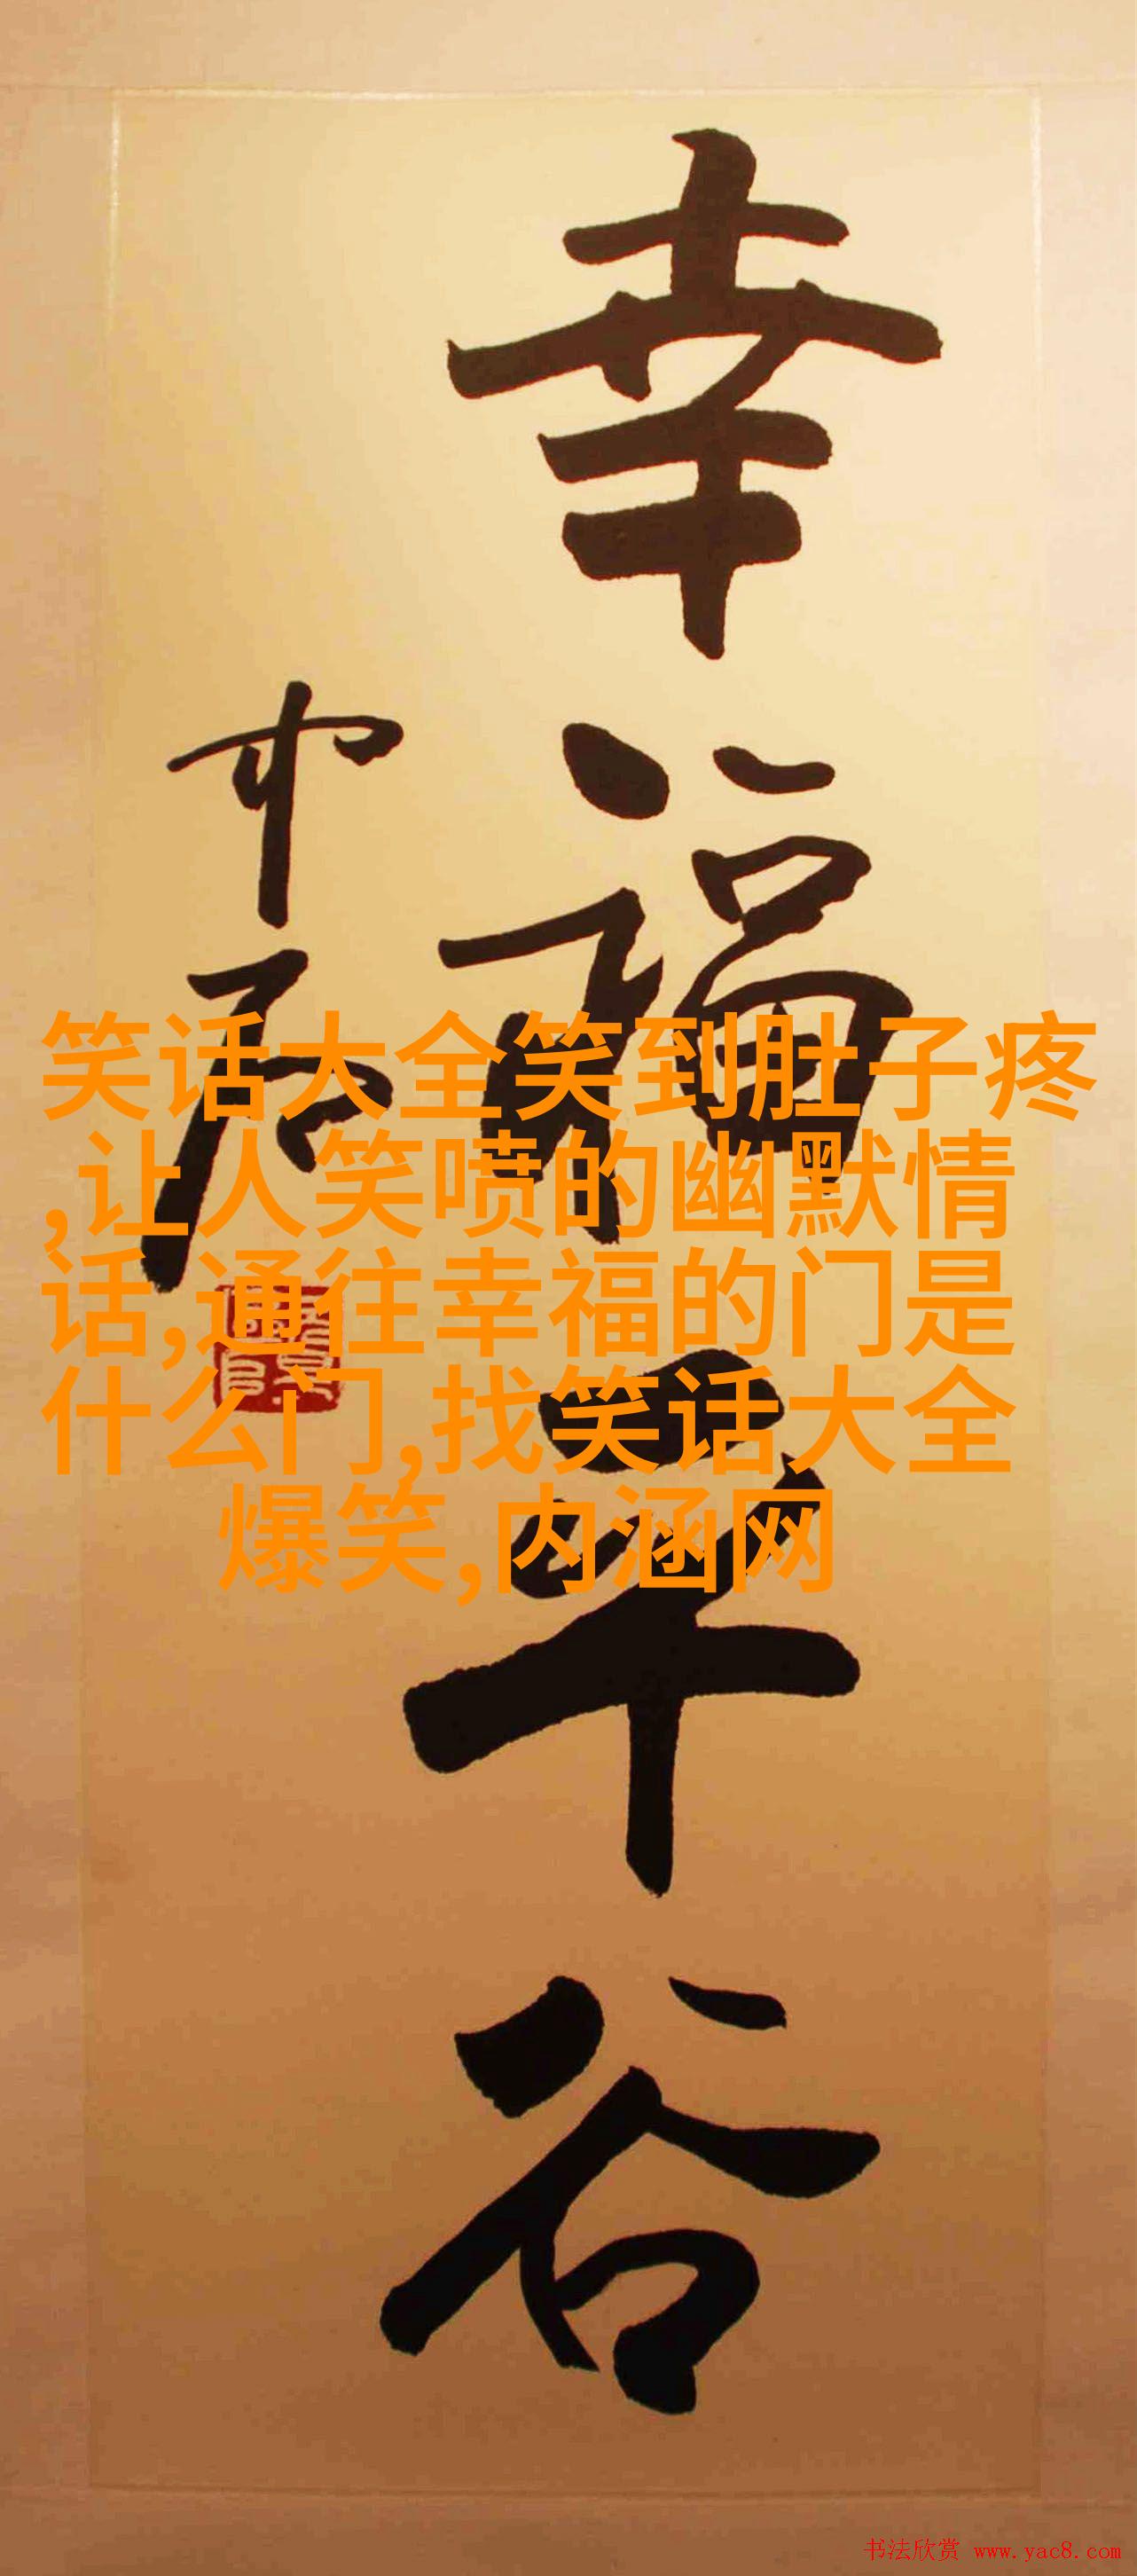 幸福平谷
中石
笑话大全笑到肚子疼
,让人笑喷的幽默情
话,通往幸福的门是
什么门,找笑话大全
爆笑,内涵网
书法欣赏 www.yac8.com